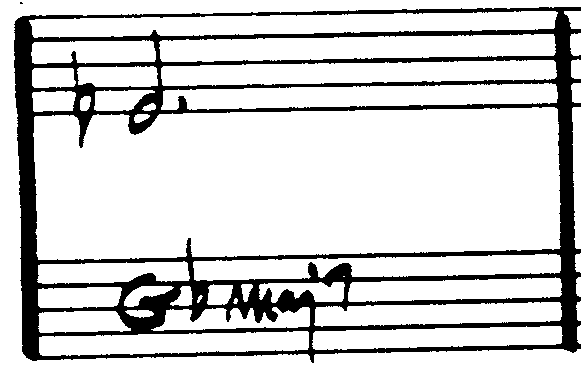 G♭ maj7